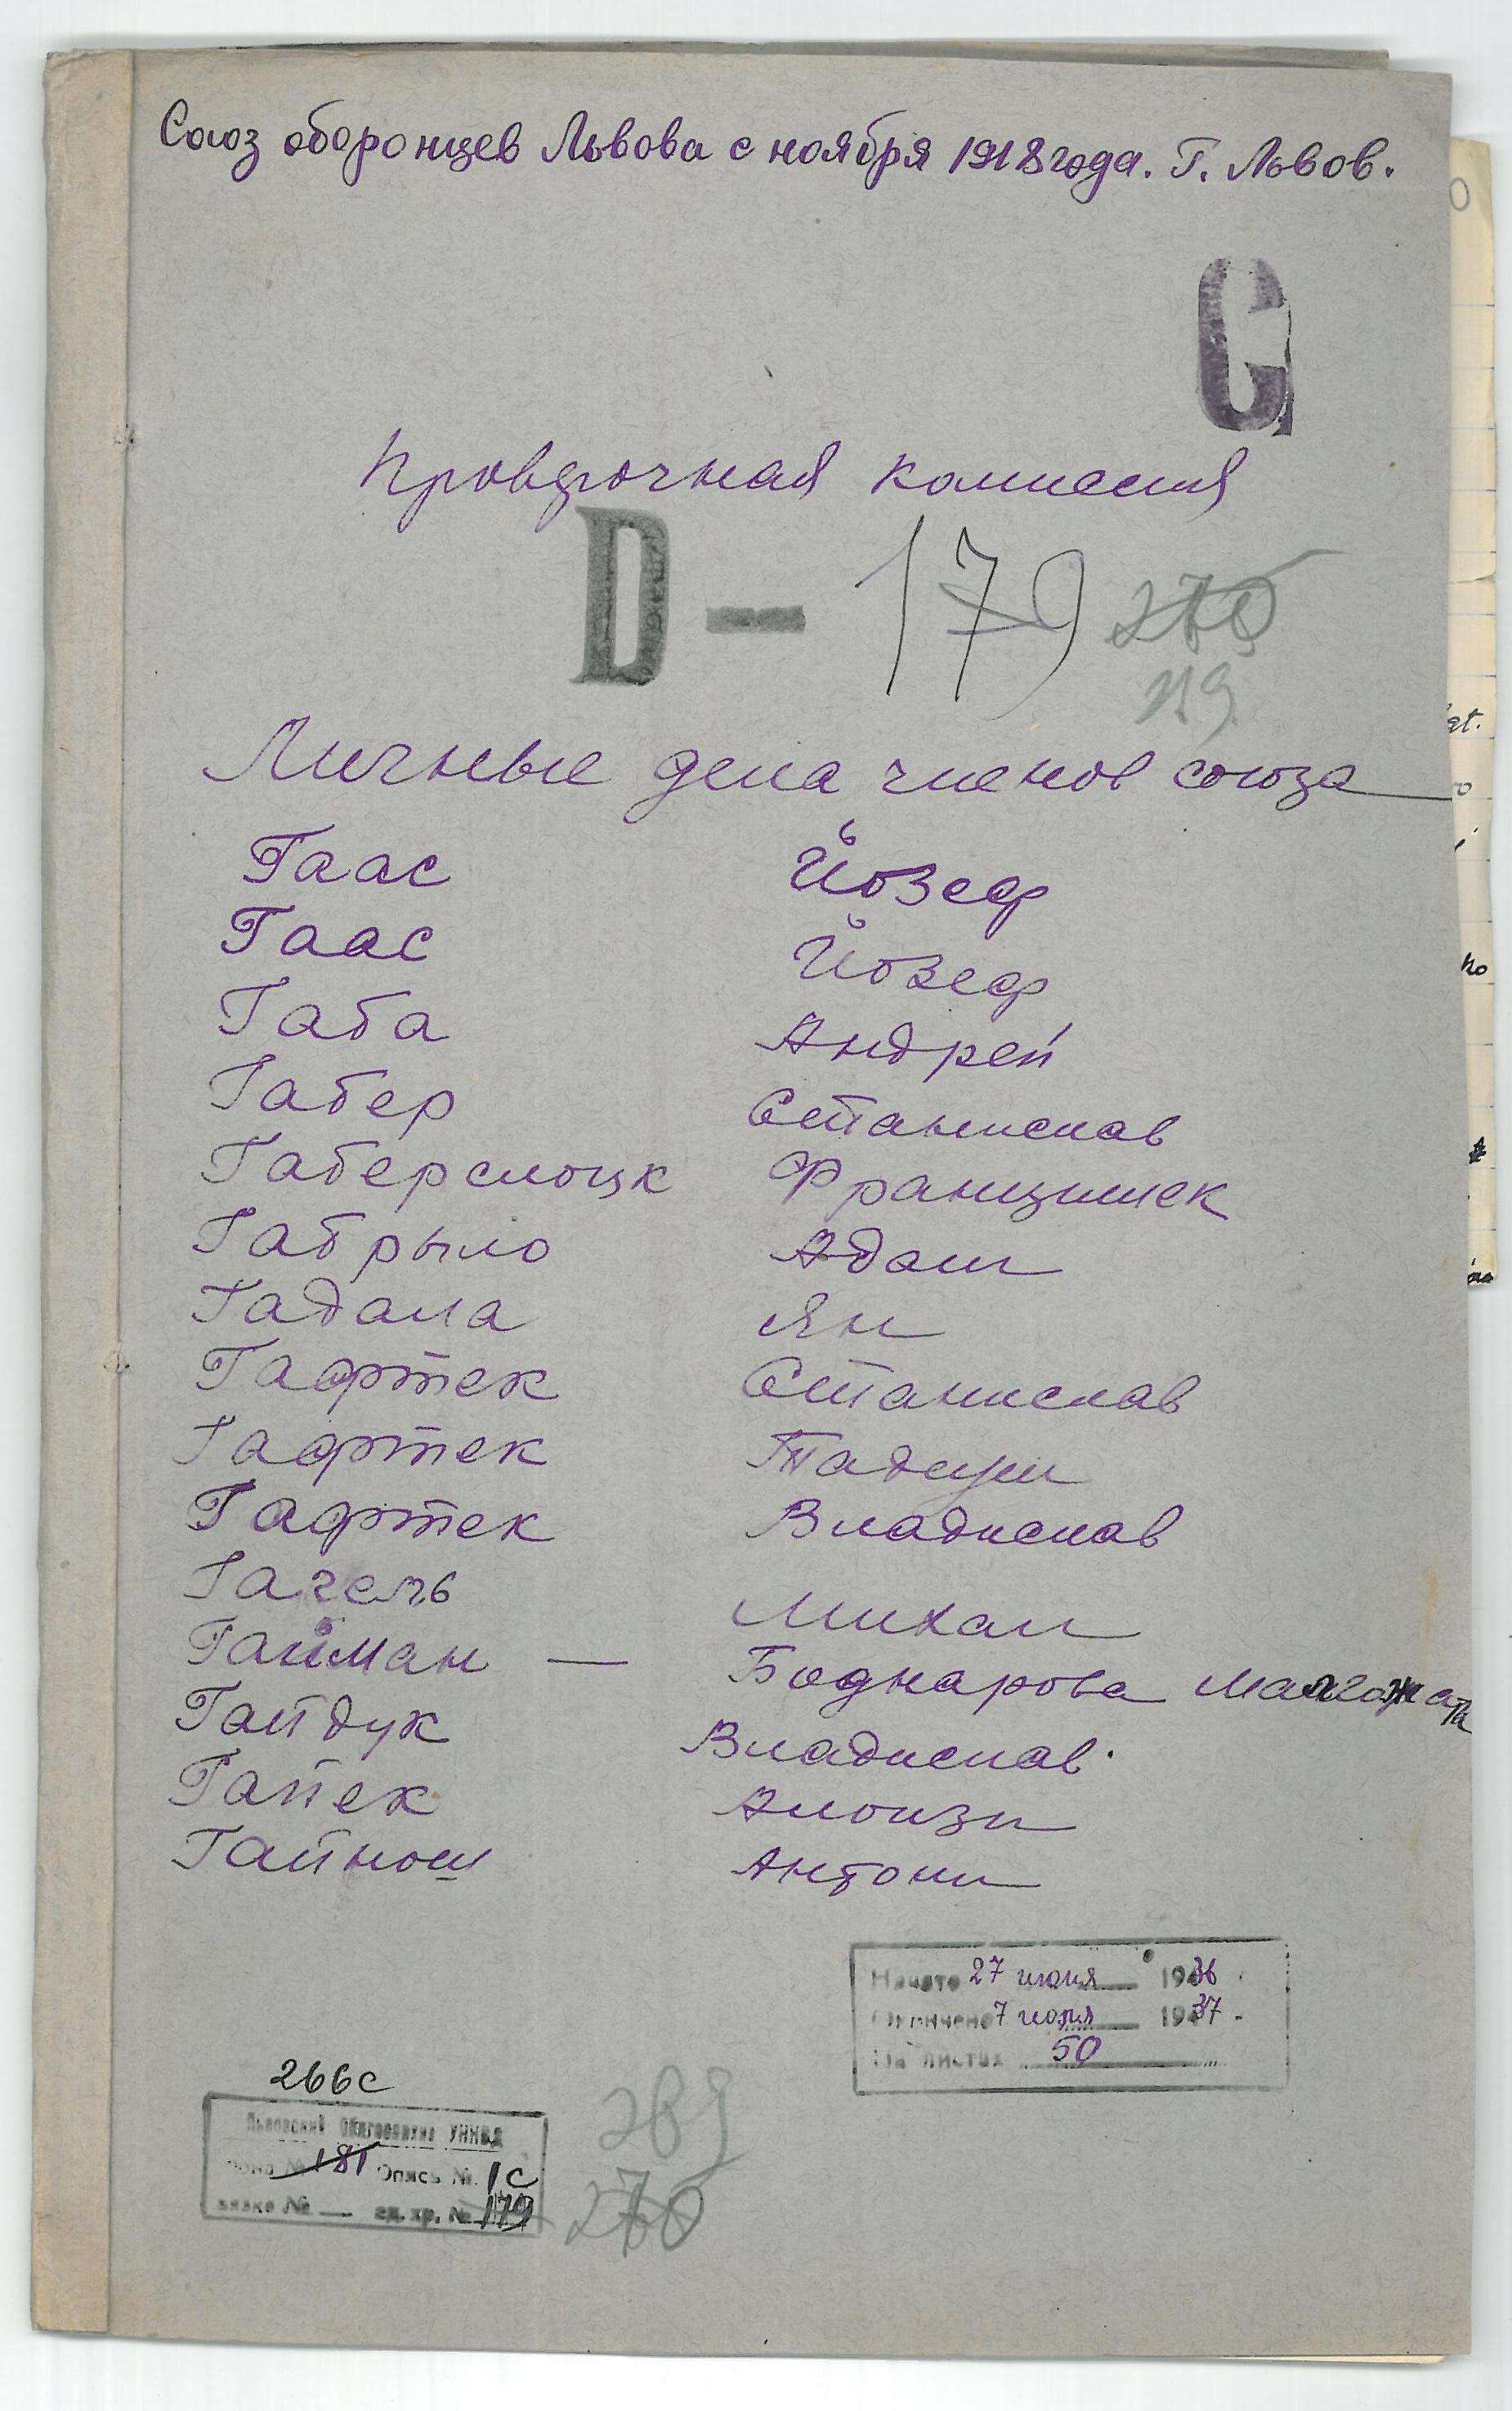 Союз оборонцев Львова с ноября 1918 года. Г. Львов.
G
Проверочная комиссия
D - 179 270
Личные дела членов союза
Гаас Йозеф
Гаас Йозеф
Габа Андрей
Габер Станислав
Габерслоцк Францишек
Габрыло Адам
Гадала Ян
Гафтек Станислав
Гафтек Тадеуш
Гафтек Владислав
Гагель Михал
Гайман — Боднарова Малгожата
Гайдук Владислав
Гайек Алоизи
Гайнош Антони
Начато 27 июня 1936
Окончено 7 июля 1937
На листах 50
266с
Львовский Облгосархив УНКВД
Фонд № 181 Опись № 1с
вязка № — ед. хр. № 179
269
270